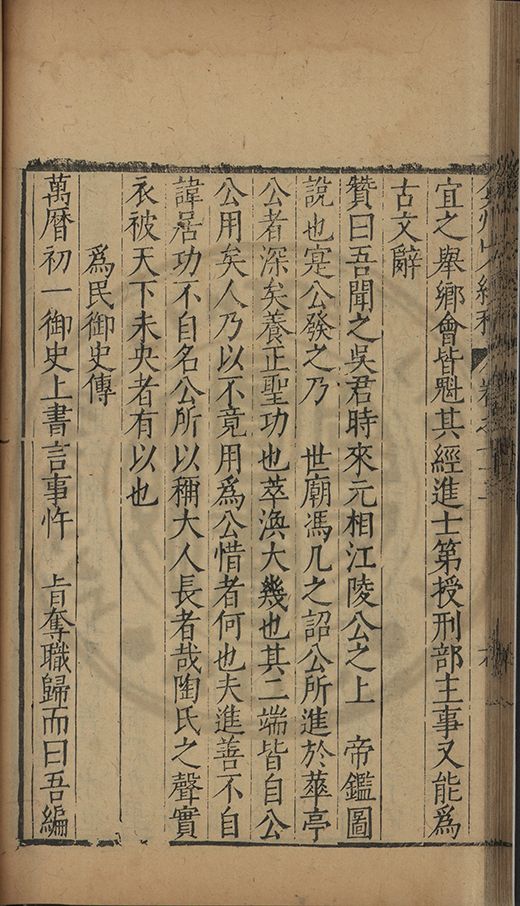 宜之舉鄉會皆魁其經進士第授刑部主事又能爲
古文辭
贊曰吾聞之吳君時來元相江陵公之上　帝鑑圖
說也寔公發之乃　世廟馮几之詔公所進於華亭
公者深矣養正聖功也萃渙大幾也其二端皆自公
公用矣人乃以不竟用爲公惜者何也夫進善不自
諱居功不自名公所以稱大人長者哉陶氏之聲實
衣被天下未央者有以也
爲民御史傳
萬曆初一御史上書言事忤　旨奪職歸而曰吾編